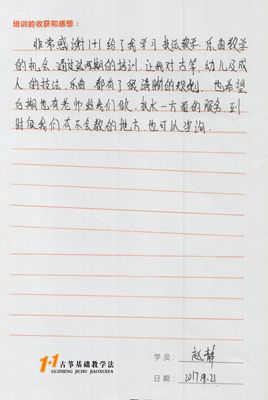 培训的收获和感想：
非常感谢1+1给了我学习技法教学、乐曲教学
的机会，通过这两期的培训，让我对古筝，幼儿及成
人的技法，乐曲都有了很清晰的规划。也希望
后期也有老师给我们做，技术一方面的服务，到
时候我们有不会教的地方也可以咨询。
学员：赵静
1+1 古筝基础教学法
GUZHENG JICHU JIAOXUEFA
日期：2017.9.21